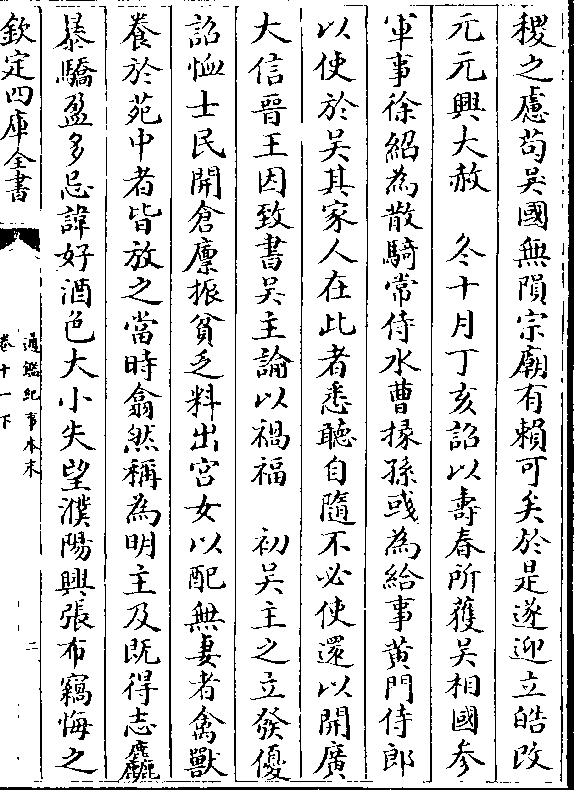 稷之慮苟吳國無隕宗廟有賴可矣於是遂迎立皓改
元元興大赦　冬十月丁亥詔以壽春所獲吳相國參
軍事徐紹為散騎常侍水曹掾孫彧為給事黃門侍郎
以使於吳其家人在此者悉聽自隨不必使還以開廣
大信晉王因致書吳主諭以禍福　初吳主之立發優
詔恤士民開倉廩振貧乏料出宮女以配無妻者禽獸
養於苑中者皆放之當時翕然稱為明主及既得志麤
暴驕盈多忌諱好酒色大小失望濮陽興張布竊悔之
欽定四庫全書
通鑑紀事本末
卷十一下
二